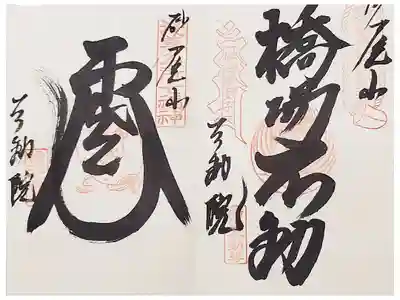 砂尾山
橋場不動
不動院
砂尾山
雲
不動院